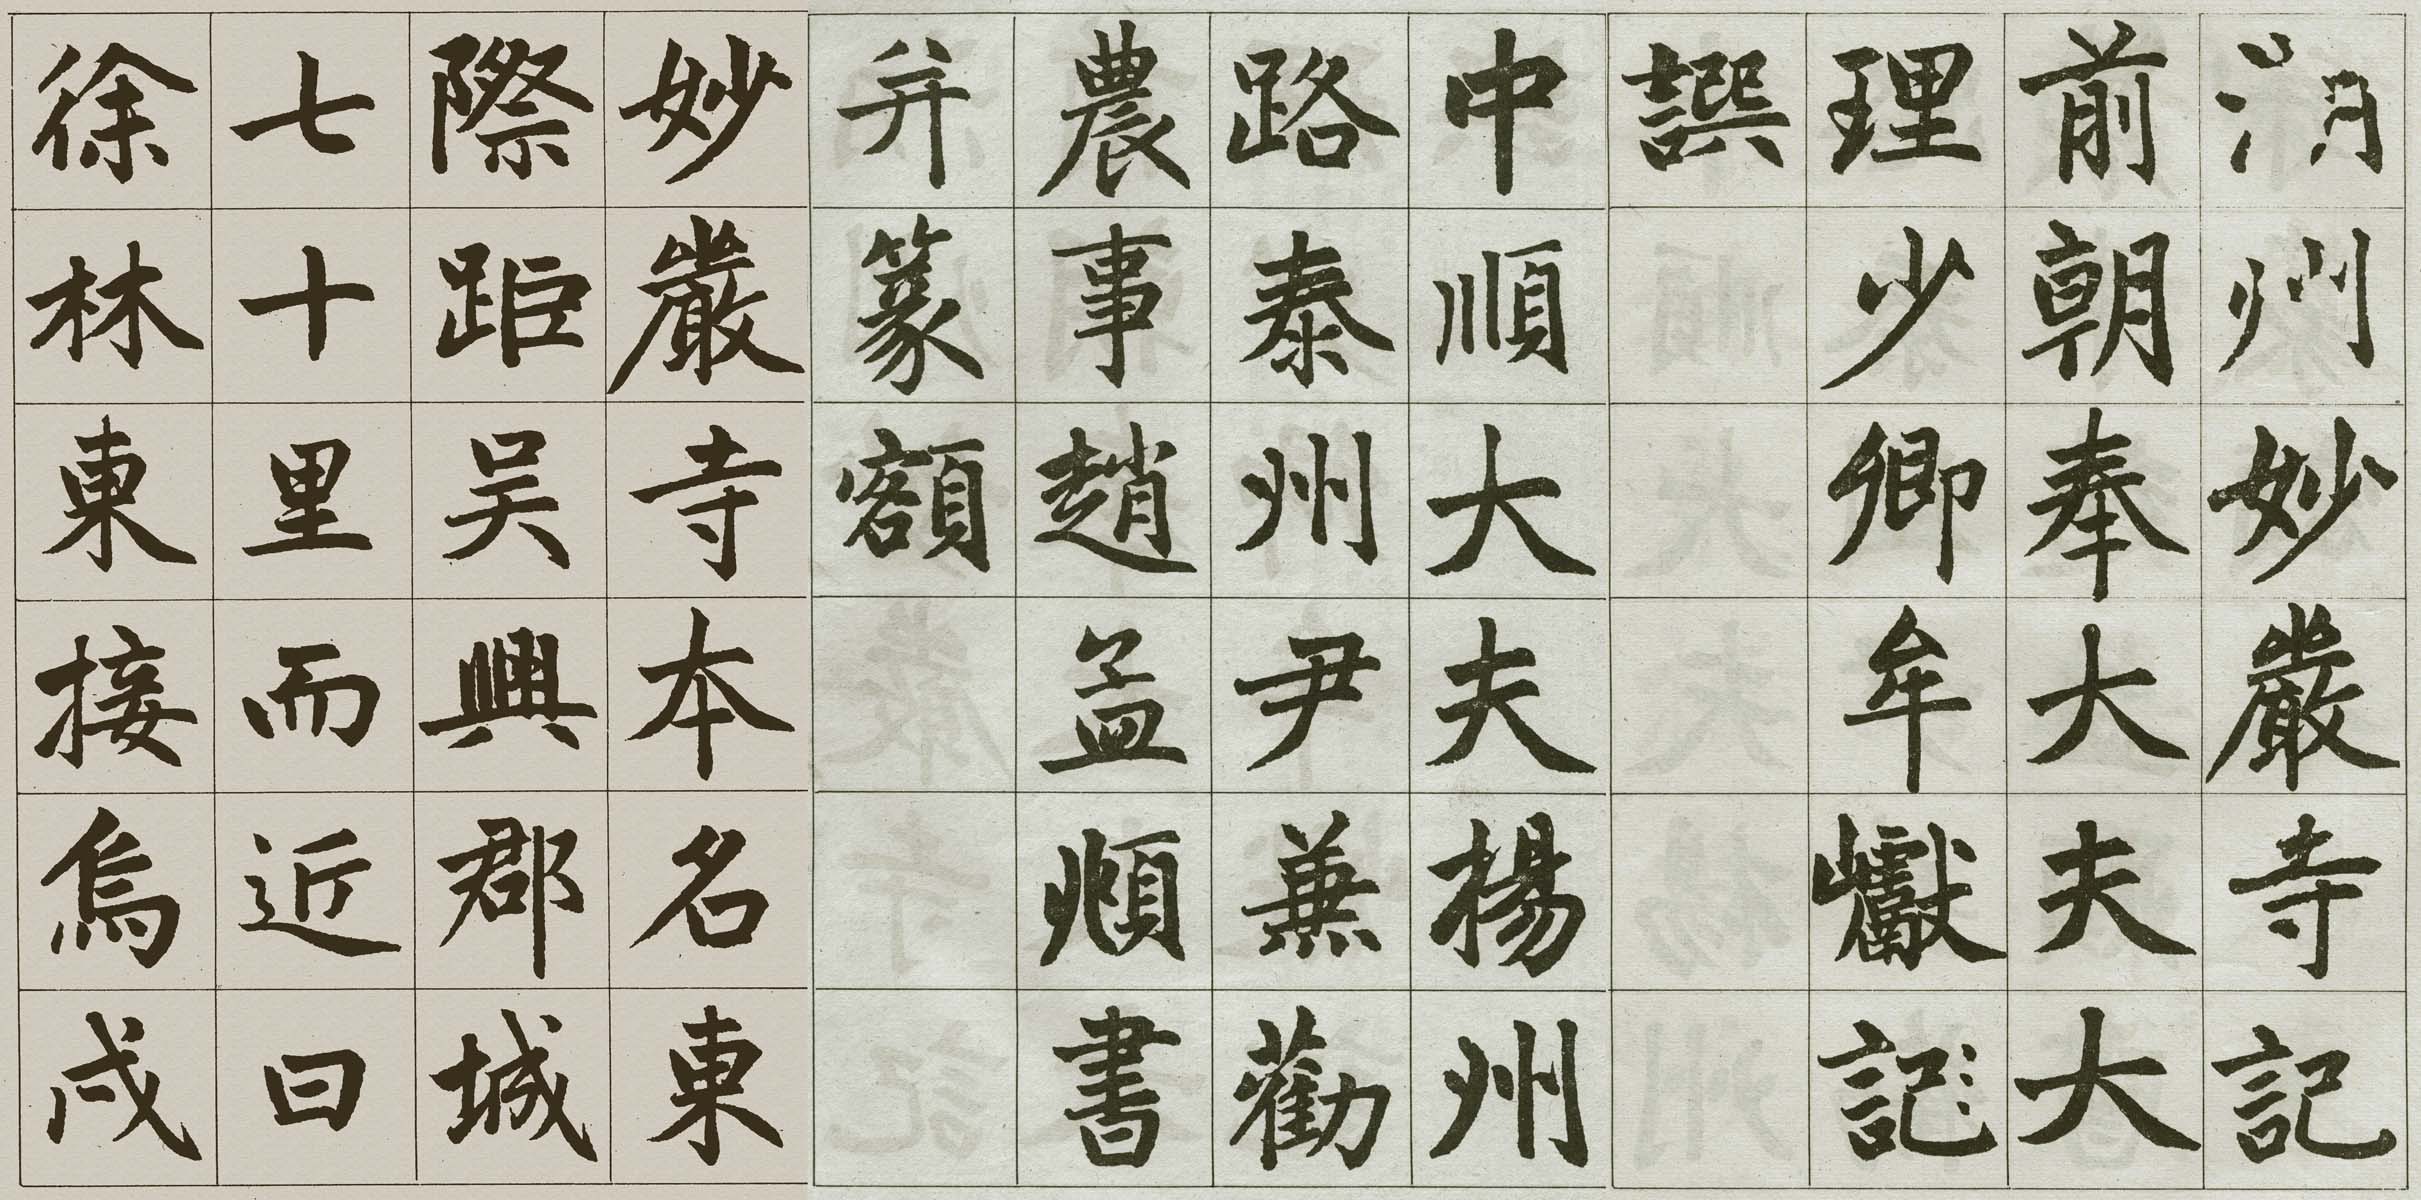 湖州妙嚴寺記
前朝奉大夫大
理少卿牟巘記
譔
中順大夫楊州
路泰州尹兼勸
農事趙孟頫書
并篆額
妙嚴寺本名東
際距吴興郡城
七十里而近曰
徐林東接烏戍